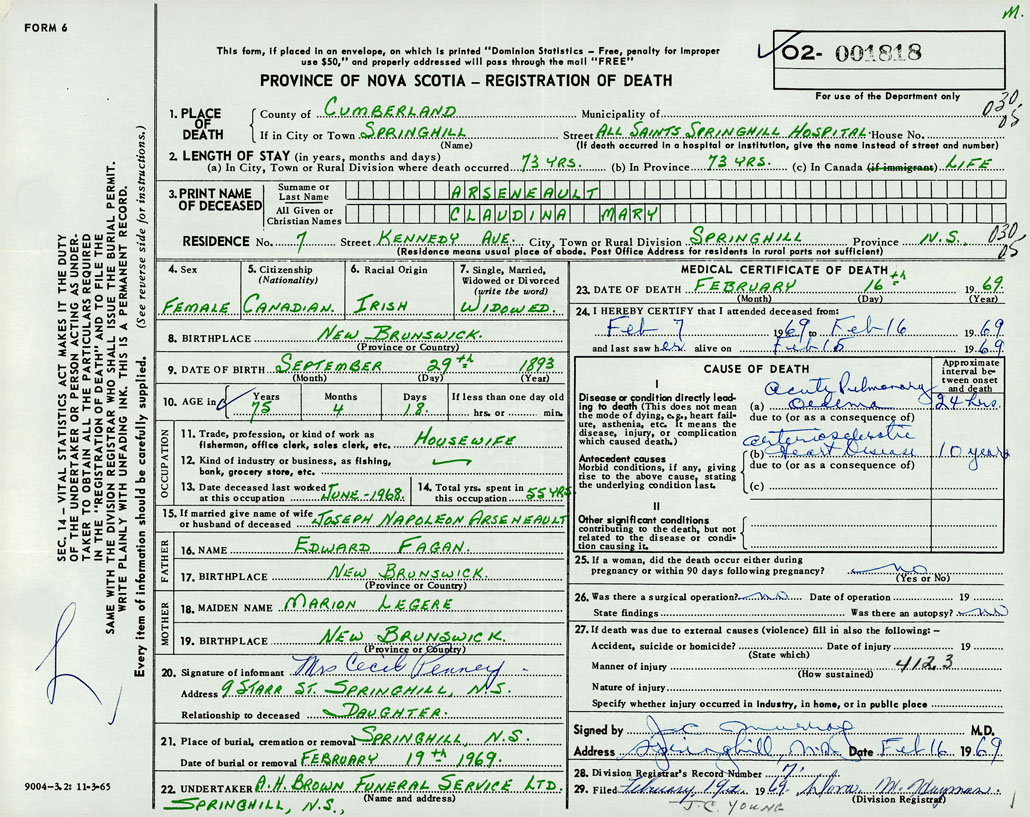 FORM 6
M.
This form, if placed in an envelope, on which is printed "Dominion Statistics – Free, penalty for improper
use $50," and properly addressed will pass through the mail "FREE"
PROVINCE OF NOVA SCOTIA – REGISTRATION OF DEATH
02- 001818
For use of the Department only
030
05
1. PLACE OF DEATH
County of CUMBERLAND Municipality of
If in City or Town SPRINGHILL Street ALL SAINTS SPRINGHILL HOSPITAL House No.
(Name) (If death occurred in a hospital or institution, give the name instead of street and number)
2. LENGTH OF STAY (in years, months and days)
(a) In City, Town or Rural Division where death occurred 73 YRS. (b) In Province 73 YRS. (c) In Canada (if immigrant) LIFE
3. PRINT NAME OF DECEASED
Surname or Last Name ARSENEAULT
All Given or Christian Names CLAUDINA MARY
RESIDENCE No. 7 Street KENNEDY AVE. City, Town or Rural Division SPRINGHILL Province N.S. 030
05
(Residence means usual place of abode. Post Office Address for residents in rural parts not sufficient)
4. Sex
FEMALE
5. Citizenship
(Nationality)
CANADIAN.
6. Racial Origin
IRISH
7. Single, Married,
Widowed or Divorced
(write the word)
WIDOWED.
8. BIRTHPLACE NEW BRUNSWICK.
(Province or Country)
9. DATE OF BIRTH SEPTEMBER 29th 1893
(Month) (Day) (Year)
10. AGE in Years Months Days If less than one day old
75 4 18. hrs. or min.
OCCUPATION
11. Trade, profession, or kind of work as
fisherman, office clerk, sales clerk, etc. HOUSEWIFE
12. Kind of industry or business, as fishing,
bank, grocery store, etc.
13. Date deceased last worked
at this occupation JUNE-1968.
14. Total yrs. spent in
this occupation 55 YRS
15. If married give name of wife
or husband of deceased JOSEPH NAPOLEON ARSENEAULT
FATHER
16. NAME EDWARD FAGAN.
17. BIRTHPLACE NEW BRUNSWICK.
(Province or Country)
MOTHER
18. MAIDEN NAME MARION LEGERE
19. BIRTHPLACE NEW BRUNSWICK.
(Province or Country)
20. Signature of informant Mrs Cecil Penney
Address 9 STARR ST. SPRINGHILL, N.S.
Relationship to deceased DAUGHTER.
21. Place of burial, cremation or removal SPRINGHILL N.S.
Date of burial or removal FEBRUARY 19th 1969.
22. UNDERTAKER A.H. BROWN FUNERAL SERVICE LTD.
(Name and address)
SPRINGHILL, N.S.,
MEDICAL CERTIFICATE OF DEATH
23. DATE OF DEATH FEBRUARY 16th 1969.
(Month) (Day) (Year)
24. I HEREBY CERTIFY that I attended deceased from:
Feb 7 1969 to Feb 16 1969
and last saw her alive on Feb 15 1969
CAUSE OF DEATH
Approximate interval between onset and death
I
Disease or condition directly leading to death (This does not mean the mode of dying, e.g., heart failure, asthenia, etc. It means the disease, injury, or complication which caused death.)
(a) Acute Pulmonary Oedema 24 hrs.
due to (or as a consequence of)
Antecedent causes
Morbid conditions, if any, giving rise to the above cause, stating the underlying condition last.
(b) Arteriosclerotic Heart Disease 10 years
due to (or as a consequence of)
(c)
II
Other significant conditions
contributing to the death, but not
related to the disease or condition causing it.
25. If a woman, did the death occur either during
pregnancy or within 90 days following pregnancy? no
(Yes or No)
26. Was there a surgical operation? no Date of operation 19
State findings Was there an autopsy? no
27. If death was due to external causes (violence) fill in also the following: –
Accident, suicide or homicide? Date of injury 19
(State which)
Manner of injury 4123
(How sustained)
Nature of injury
Specify whether injury occurred in industry, in home, or in public place
Signed by J.C. Murray M.D.
Address Springhill, N.S. Date Feb 16 1969
28. Division Registrar's Record Number 7.
29. Filed February 19th 1969 M. Hayman
(Division Registrar)
J.C. YOUNG
SEC. 14 – VITAL STATISTICS ACT MAKES IT THE DUTY
OF THE UNDERTAKER OR PERSON ACTING AS UNDER-
TAKER TO OBTAIN ALL THE PARTICULARS REQUIRED
IN THE "REGISTRATION OF DEATH" AND TO FILE THE
SAME WITH THE DIVISION REGISTRAR WHO SHALL ISSUE THE BURIAL PERMIT.
WRITE PLAINLY WITH UNFADING INK. THIS IS A PERMANENT RECORD.
Every item of information should be carefully supplied. (See reverse side for instructions.)
9004-3.2: 11-3-65